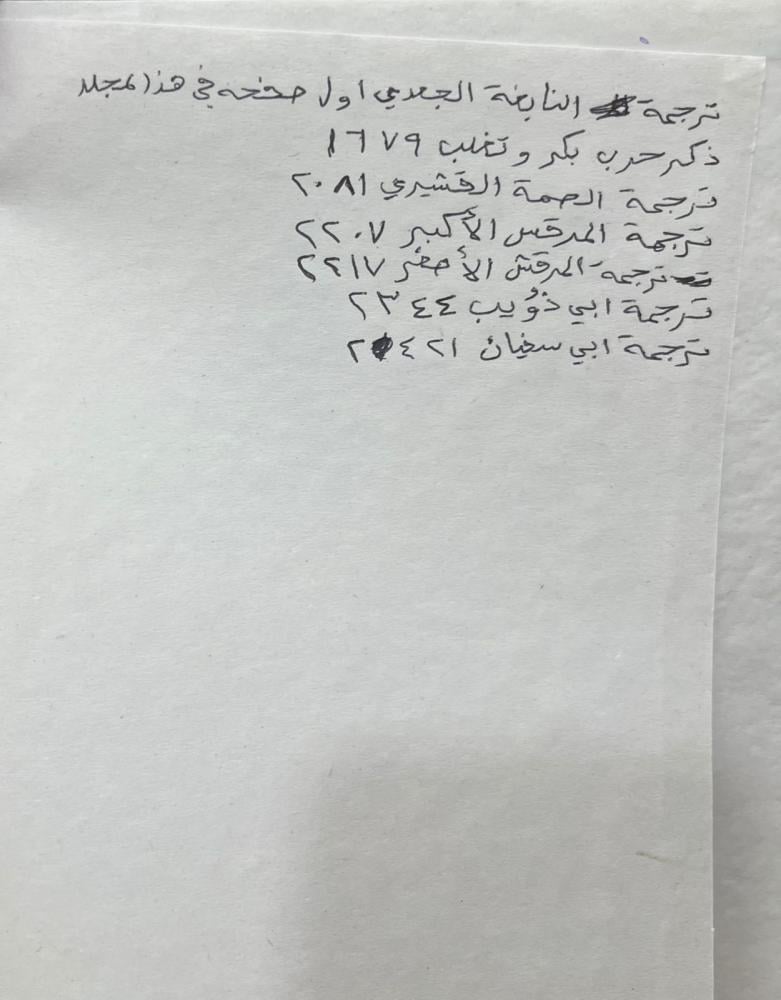 ترجمة النابغة الجعدي اول صفحه في هذا المجلد
ذكر حرب بكر و تغلب ١٦٧٩
ترجمة الصمة القشيري ٢٠٨١
ترجمة المرقس الأكبر ٢٢٠٧
ترجمة المرقش الأصغر ٢٢١٧
ترجمة ابي ذؤيب ٢٣٤٤
ترجمة ابي سفيان ٢٤٢١